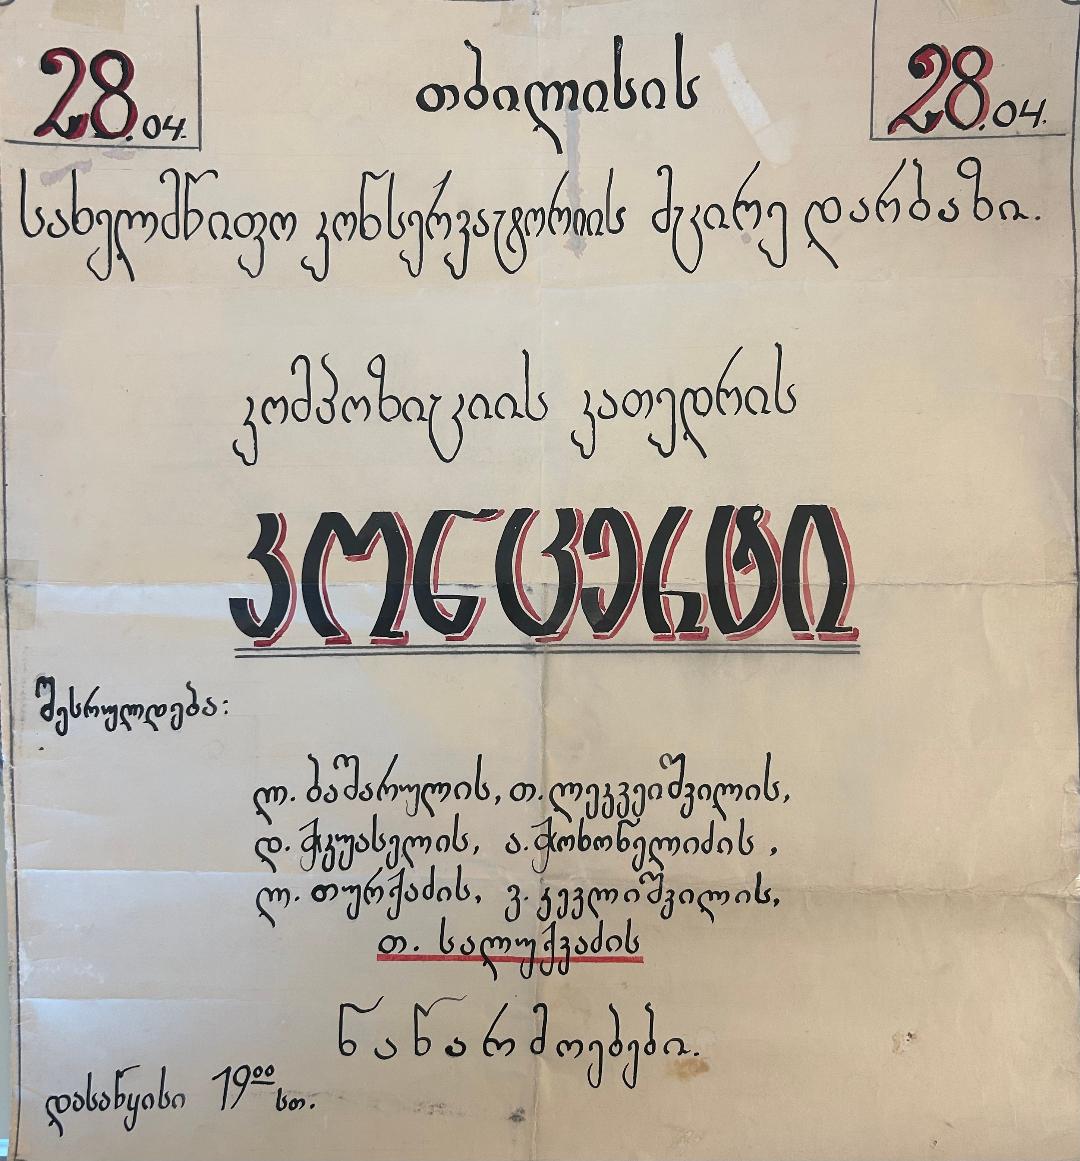 28.04.
28.04.
თბილისის
სახელმწიფო კონსერვატორიის მცირე დარბაზი.
კომპოზიციის კათედრის
კონცერტი
შესრულდება:
ლ. ბაშარულის, თ. ლეკვეიშვილის,
დ. ჭკუასელის, ა. ჭოხონელიძის,
ლ. თურქაძის, ვ. კევლიშვილის,
თ. სალუქვაძის
ნაწარმოებები.
დასაწყისი 19⁰⁰ სთ.